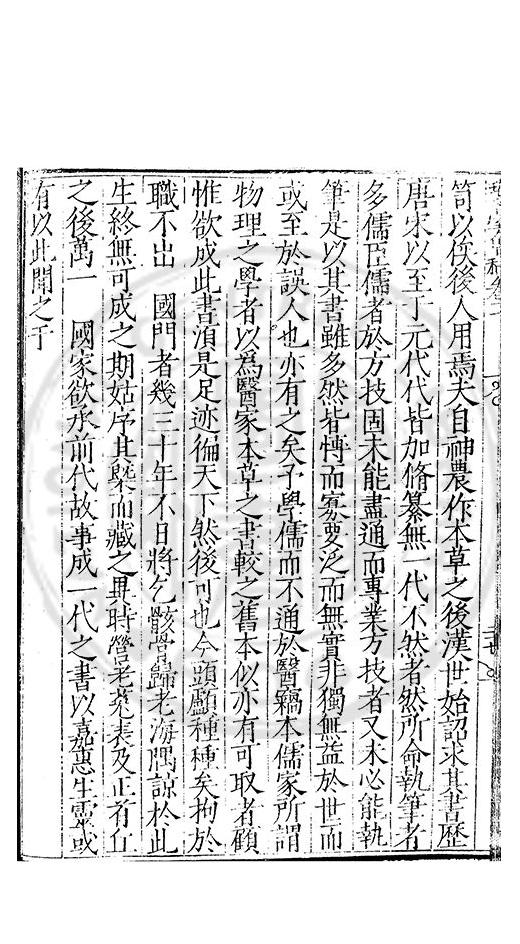 笥以俟後人用焉夫自神農作本草之後漢世始詔求其書歷
唐宋以至于元代代皆加脩纂無一代不然者然所命執筆者
多儒臣儒者於方技固未能盡通而專業方技者又未必能執
筆是以其書雖多然皆慱而寡要泛而無實非獨無益於世而
或至於誤人也亦有之矣予學儒而不通於醫竊本儒家所謂
物理之學者以為醫家本草之書較之舊本似亦有可取者顧
惟欲成此書須是足迹徧天下然後可也今頭顱種種矣拘於
職不出 國門者幾三十年不日將乞骸骨歸老海隅諒於此
生終無可成之期姑序其槩而藏之異時營老菟裘及正首丘
之後萬一 國家欲承前代故事成一代之書以嘉惠生靈或
有以此聞之于